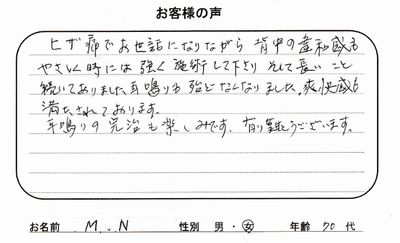 お客様の声
ヒザ痛でお世話になりながら 背中の違和感も
やさしく時には強く施術して下さり そして長いこと
続いてありました耳鳴りも殆どなくなりました。爽快感も
満たされております。
耳鳴りの完治も楽しみです。有り難とうございます。
お名前 M.N 性別 男・女 年齢 70 代